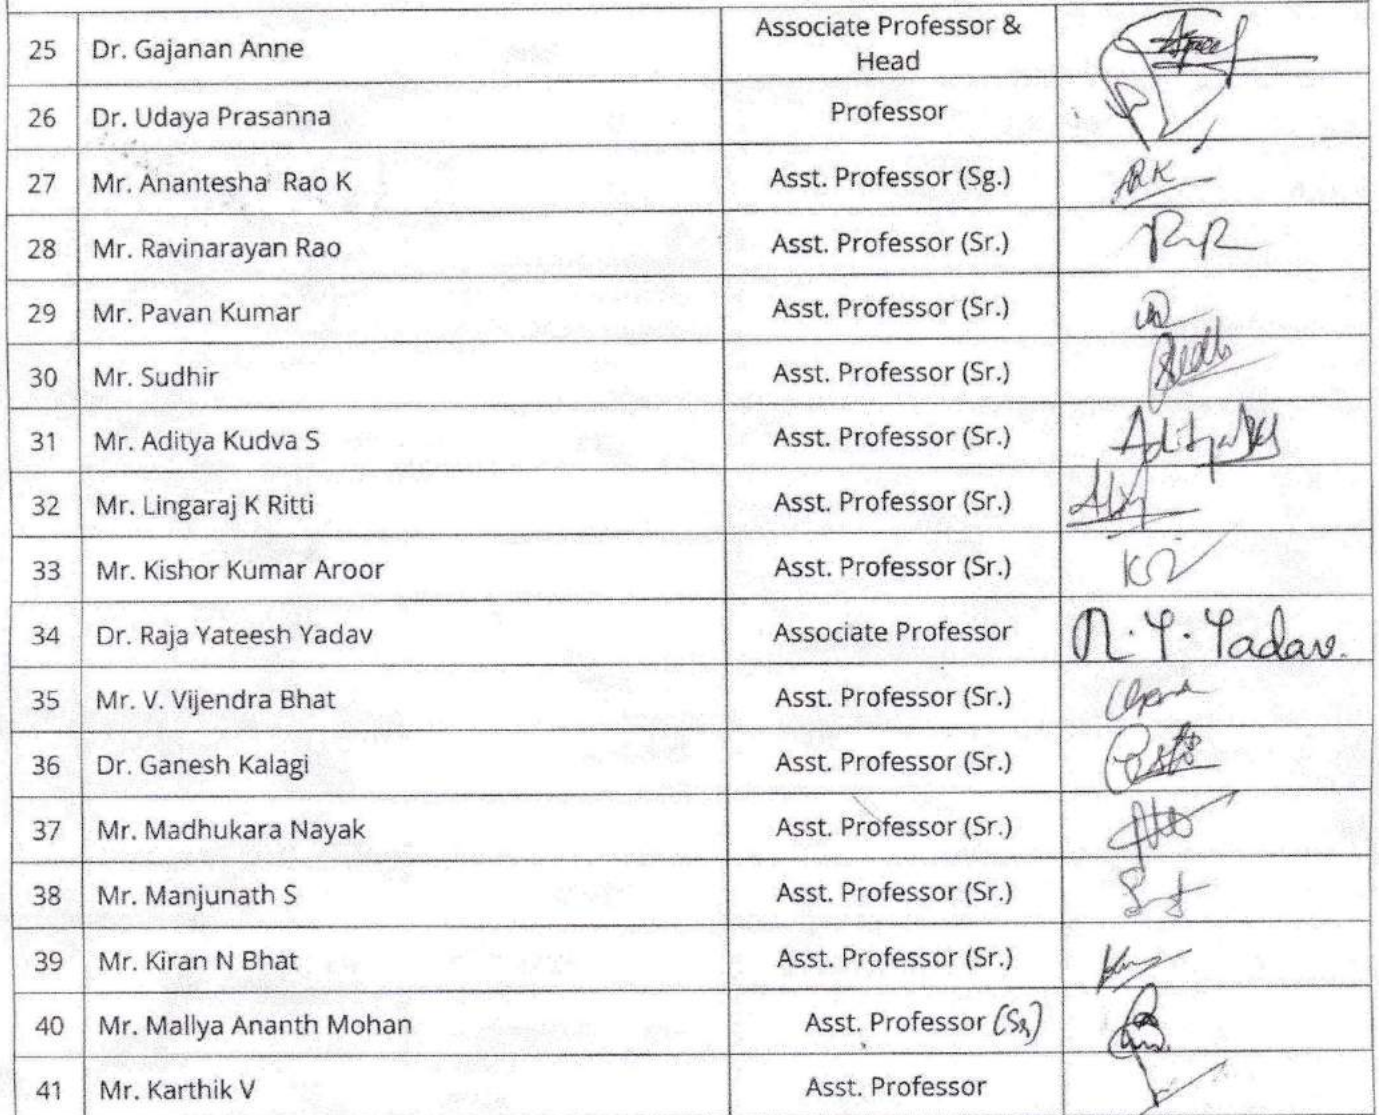 25 Dr. Gajanan Anne Associate Professor & Head
26 Dr. Udaya Prasanna Professor
27 Mr. Anantesha Rao K Asst. Professor (Sg.) ARK
28 Mr. Ravinarayan Rao Asst. Professor (Sr.)
29 Mr. Pavan Kumar Asst. Professor (Sr.)
30 Mr. Sudhir Asst. Professor (Sr.)
31 Mr. Aditya Kudva S Asst. Professor (Sr.)
32 Mr. Lingaraj K Ritti Asst. Professor (Sr.)
33 Mr. Kishor Kumar Aroor Asst. Professor (Sr.)
34 Dr. Raja Yateesh Yadav Associate Professor R. Y. Yadav.
35 Mr. V. Vijendra Bhat Asst. Professor (Sr.)
36 Dr. Ganesh Kalagi Asst. Professor (Sr.)
37 Mr. Madhukara Nayak Asst. Professor (Sr.)
38 Mr. Manjunath S Asst. Professor (Sr.)
39 Mr. Kiran N Bhat Asst. Professor (Sr.)
40 Mr. Mallya Ananth Mohan Asst. Professor (Sr)
41 Mr. Karthik V Asst. Professor